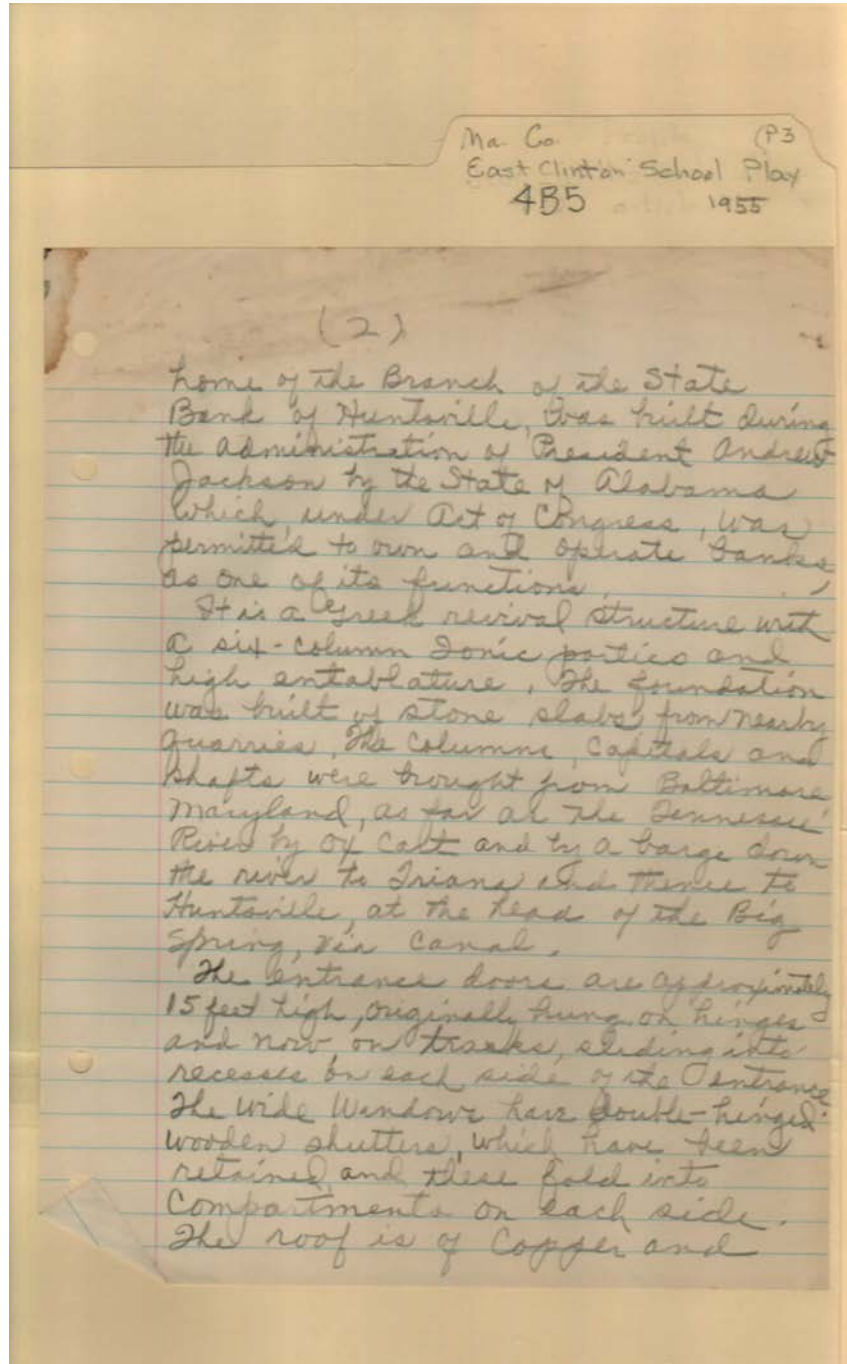 Ma. Co. (P3
East Clinton School Play
4B5 1955
(2)
home of the Branch of the State
Bank of Huntsville, was built during
the administration of President Andrew
Jackson by the State of Alabama
which, under Act of Congress, was
permitted to own and operate banks,
as one of its functions.
It is a Greek revival structure with
a six-column Ionic portico and
high entablature. The foundation
was built of stone slabs from nearby
quarries. The columns, capitals and
shafts were brought from Baltimore
Maryland, as far as the Tennessee
River by ox cart and by a barge down
the river to Triana and thence to
Huntsville, at the head of the Big
Spring, via canal.
The entrance doors are approximately
15 feet high, originally hung on hinges
and now, on tracks, sliding into
recesses on each side of the entrance.
The wide windows have double-hinged
wooden shutters, which have been
retained, and these fold into
compartments on each side.
The roof is of copper and